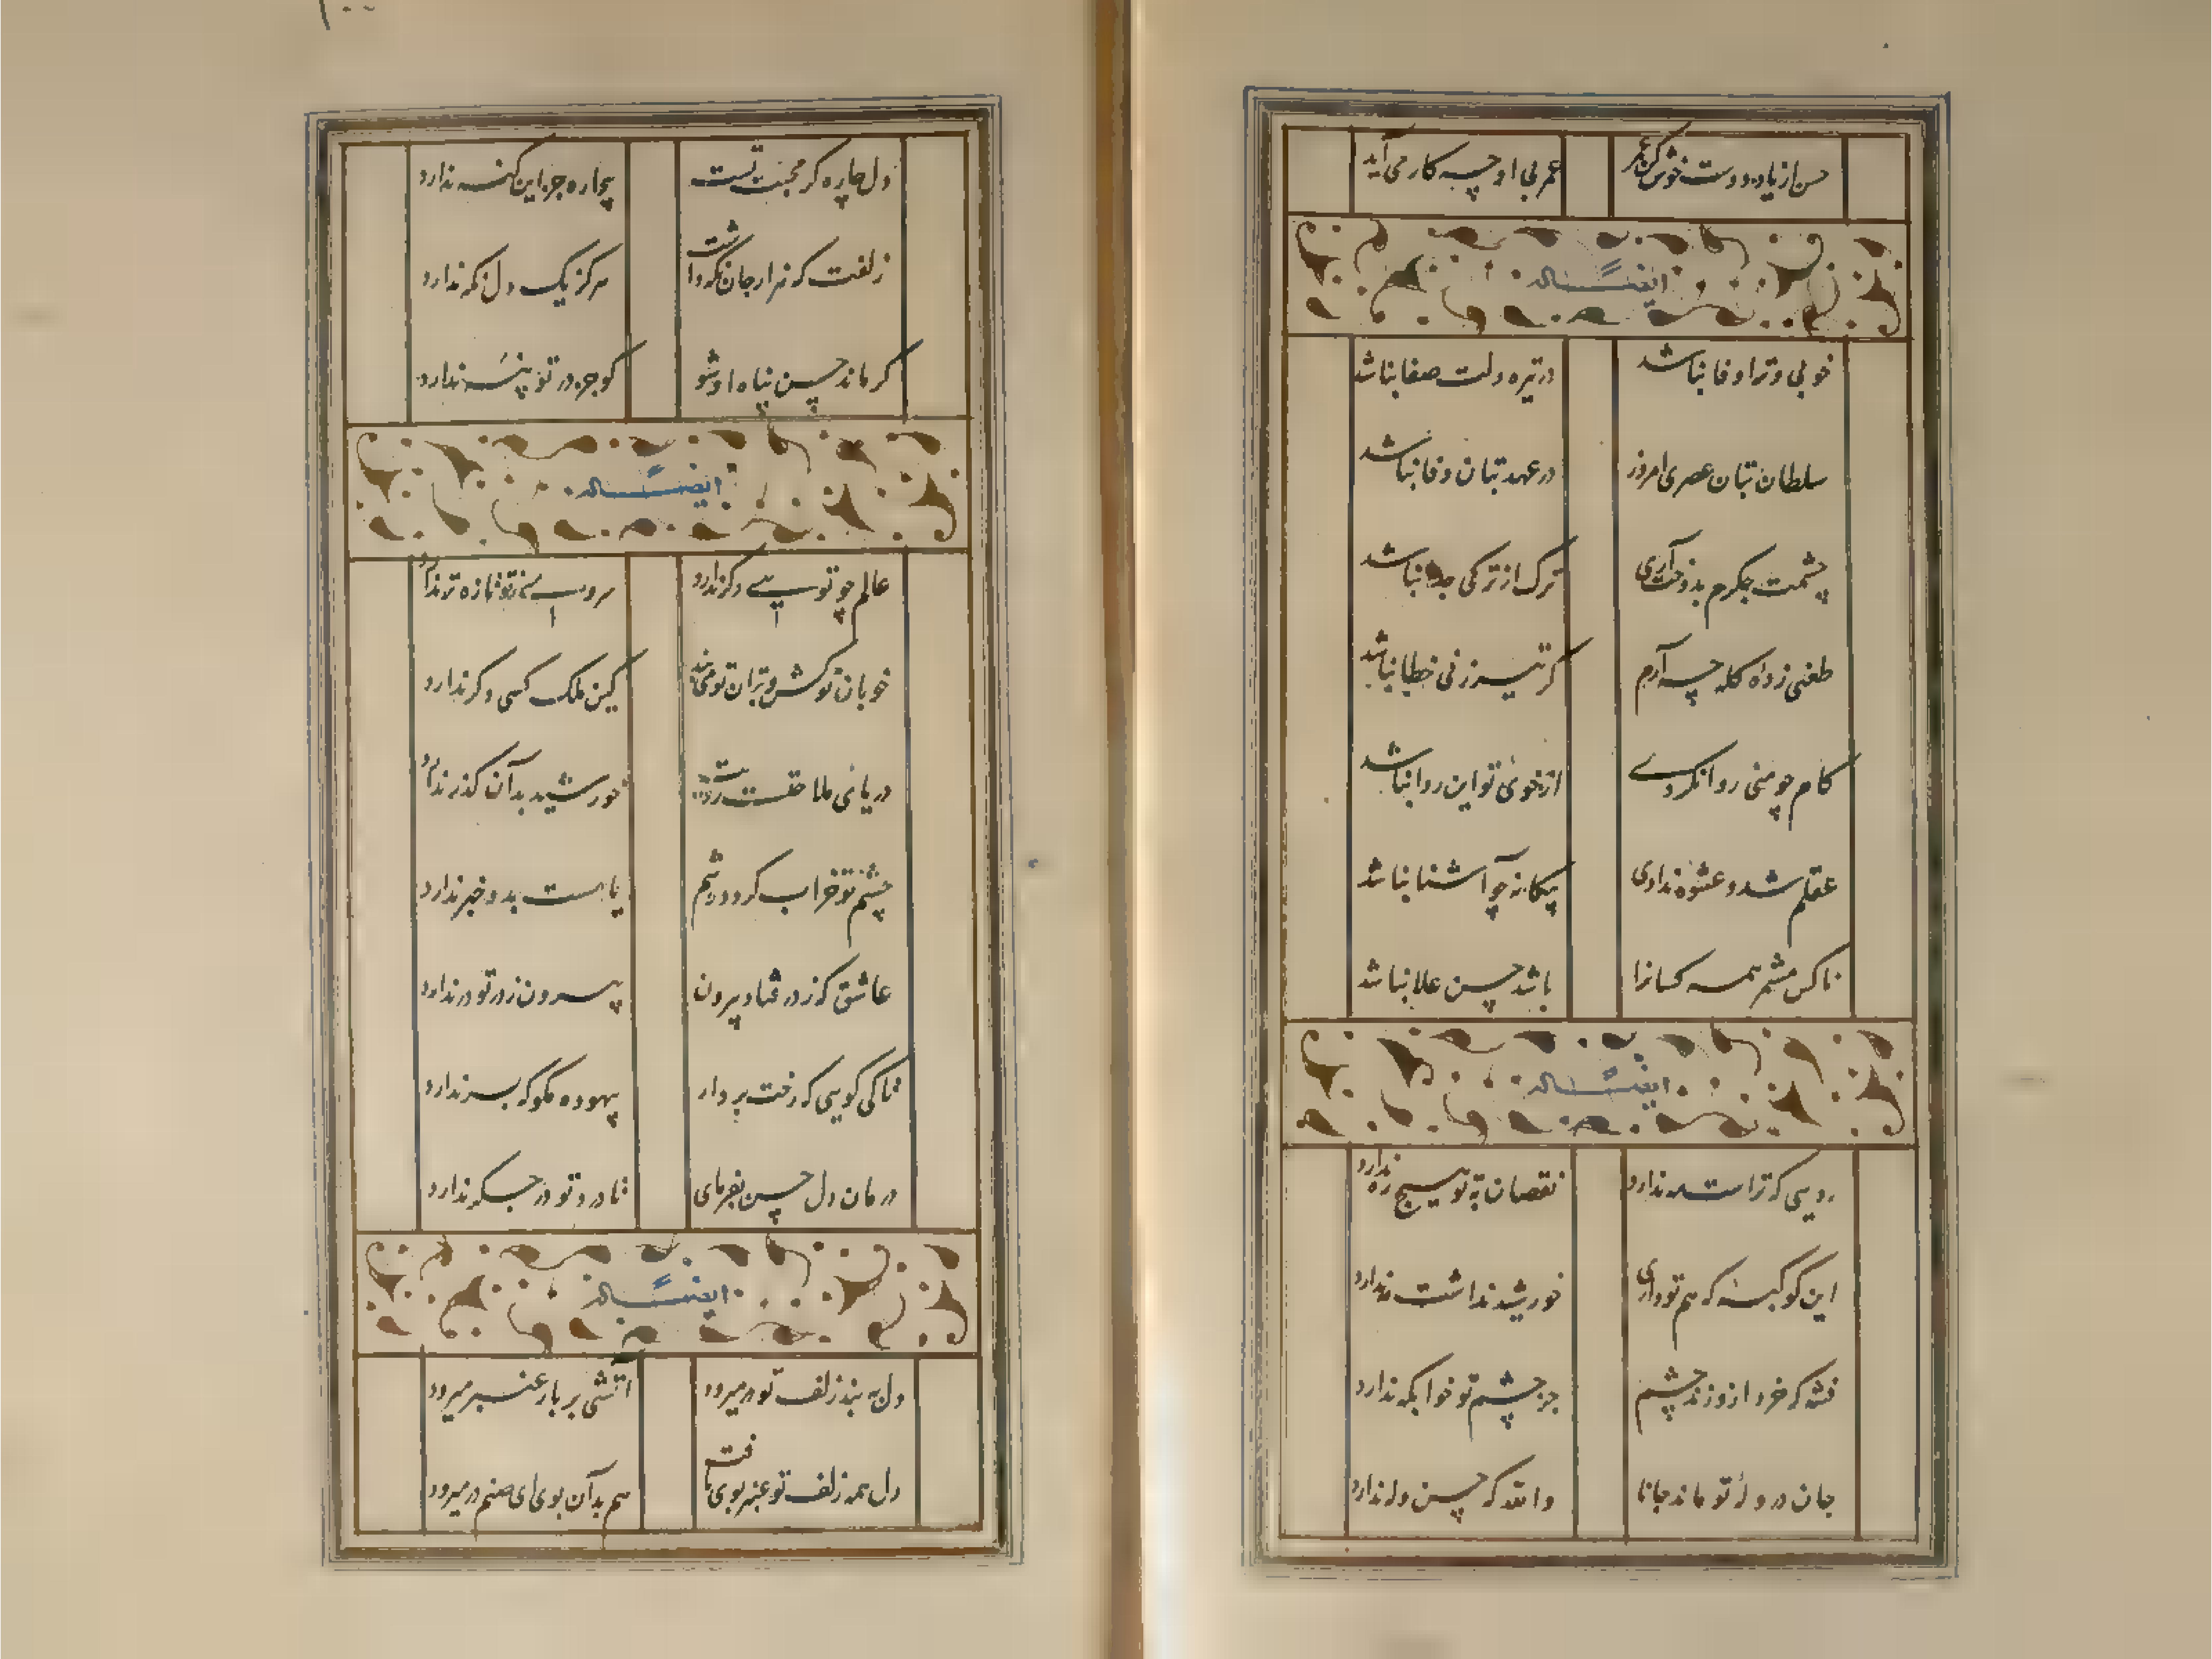 حسن از یاد دوست خوش کن عمر
عمر بی او چه کار می آید
ایضاً له
خوبی و ترا وفا نباشد
در تیره دلت صفا نباشد
سلطان بتان عصری امروز
در عهد بتان وفا نباشد
چشمت جکرم بذوحت آری
ترک از ترکی جدا نباشد
طعنی زد اه کله چه آرم
کر تیر زنی خطا نباشد
کام چو منی روا نکردی
از خوی تو این روا نباشد
عقلم شد و عشوه ندادی
بیکانه چو آشنا نباشد
ناکس مشمر همه کسانرا
باشد حسن علا نباشد
ایضاً له
رویی که تراست مه ندارد
نقصان بتو هیچ ره ندارد
این کوکبه که هم تو داری
خورشید نداشت مه ندارد
فتنه که خرد ازو زند چشم
جز چشم تو خوابکه ندارد
جان در دل تو ماند جانا
والله که حسن دل ندارد
دل چاره کر محبت تست
بیچاره جز این کنه ندارد
زلفت که هزار جان نکه داشت
هرکز یک دل نکه ندارد
کر ماند حسن پناه او شو
کو جز در تو پنه ندارد
ایضاً له
عالم چو تویی دکر ندارد
سروی ز تو تازه تر ندارد
خوبان تو کش و بران تو می زند
کین ملک کسی دکر ندارد
دریای ملاحقت رویت
خورشید بدان کذر ندارد
چشم تو خراب کرد و در شم
یا هست بدو خبر ندارد
عاشق که ز در فتاد بیرون
بیرون ز در تو در ندارد
تا کی کویی که رفت بر دار
بیهوده مکو که بر ندارد
درمان دل حسن بفرمای
تا درد تو در جکر ندارد
ایضاً له
دل به بند زلف تو در میرود
آتشی بر بار عنبر میرود
دل همه زلف تو عنبر بوی یافت
هم بدان بوی ای صنم در میرود